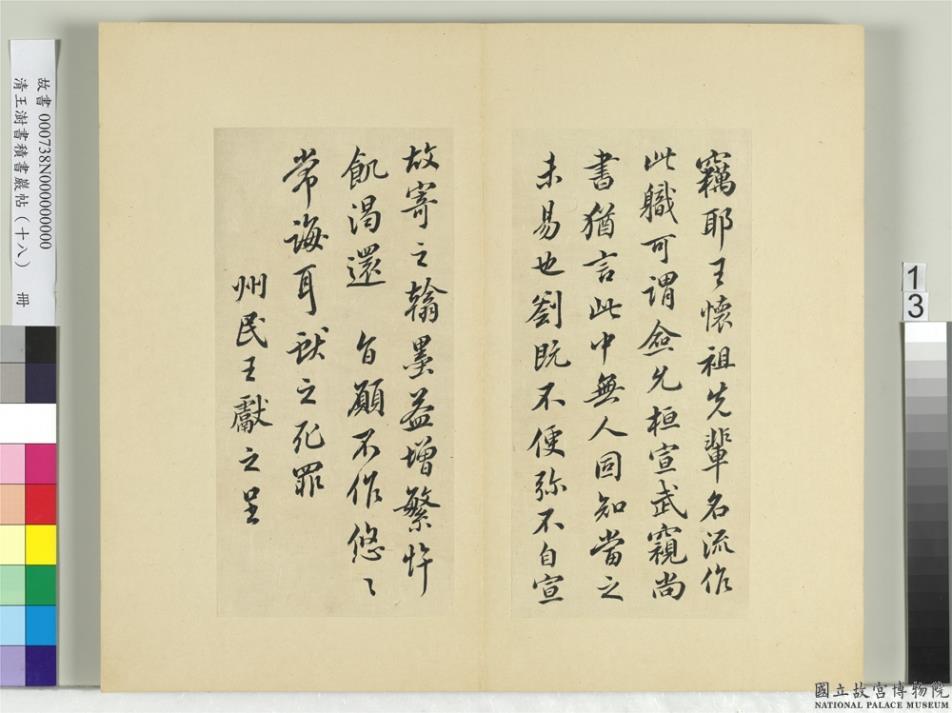 竊耶王懷祖先輩名流作
此職可謂僉允桓宣武窺尚
書猶言此中無人固知當之
未易也劉既不便弥不自宣
故寄之翰墨益增繁忤
飢渴還 旨願不作悠〻
常誨耳獻之死罪
州民王獻之呈
故書 000738N000000000
清王澍書積書巖帖(十八) 冊
1
3
國立故宮博物院
NATIONAL PALACE MUSEUM